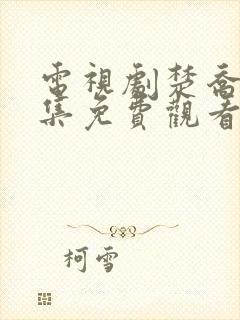 電視劇楚喬
集免費觀看
柯雪